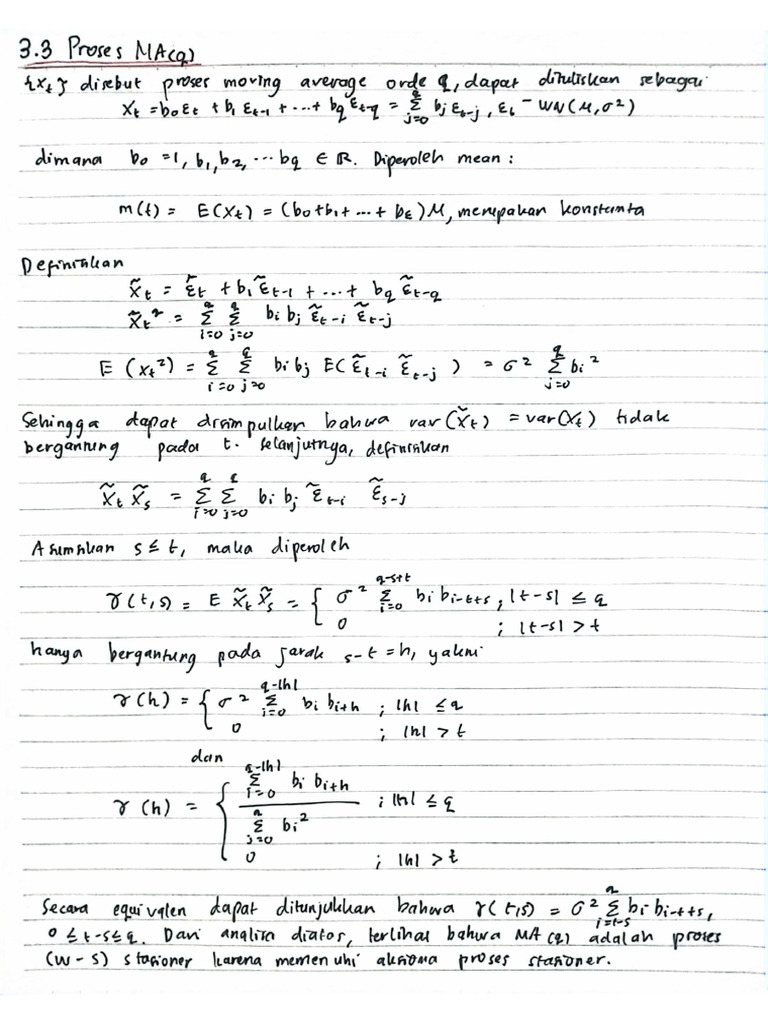 3.3 Proses MA(q)
{Xt} disebut proses moving average orde q, dapat dituliskan sebagai
Xt = b0εt + b1 εt-1 + ... + bq εt-q = Σ_{j=0}^{q} bj εt-j, εt ~ WN(μ,σ²)
dimana b0 = 1, b1, b2, ... bq ∈ ℝ. Diperoleh mean :
m(t) = E(Xt) = (b0+b1+ ... + bε)μ, merupakan konstanta
Definisikan
X̃t = ε̃t + b1 ε̃t-1 + ... + bq ε̃t-q
X̃t² = Σ_{i=0}^{q} Σ_{j=0}^{q} bi bj ε̃t-i ε̃t-j
E (Xt²) = Σ_{i=0}^{q} Σ_{j=0}^{q} bi bj E(ε̃t-i ε̃t-j) = σ² Σ_{j=0}^{q} bi²
Sehingga dapat disimpulkan bahwa var(X̃t) = var(Xt) tidak
bergantung pada t. Selanjutnya, definisikan
X̃t X̃s = Σ_{i=0}^{q} Σ_{j=0}^{q} bi bj ε̃t-i ε̃s-j
Asumsikan s ≤ t, maka diperoleh
γ(t,s) = E X̃t X̃s = { σ² Σ_{i=0}^{q-s+t} bi bi-t+s ; |t-s| ≤ q
0 ; |t-s| > t
hanya bergantung pada jarak s-t = h, yakni
γ(h) = { σ² Σ_{i=0}^{q-|h|} bi bi+h ; |h| ≤ q
0 ; |h| > t
dan
γ(h) = { Σ_{i=0}^{q-|h|} bi bi+h / Σ_{j=0}^{q} bi² ; |h| ≤ q
0 ; |h| > t
Secara equivalen dapat ditunjukkan bahwa γ(t,s) = σ² Σ_{i=t-s}^{q} bi bi-t+s,
0 ≤ t-s ≤ q. Dari analisa diatas, terlihat bahwa MA(q) adalah proses
(W-S) stasioner karena memenuhi aksioma proses stasioner.